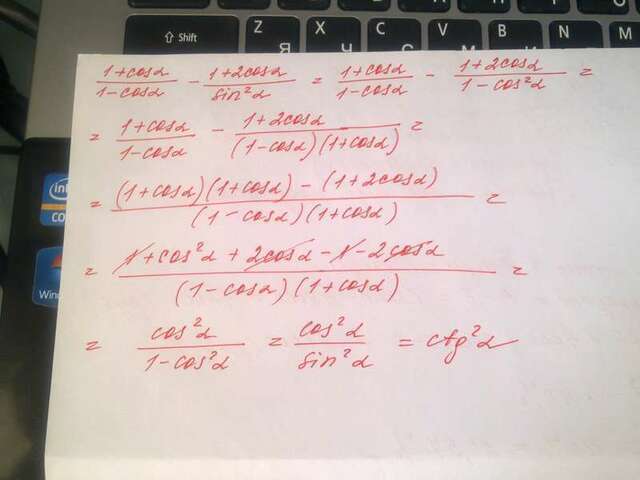 ⇧ Shift Z X C V B N
Я Ч С
intel
CO
Wind
(1+cosα)/(1-cosα) - (1+2cosα)/(sin²α) = (1+cosα)/(1-cosα) - (1+2cosα)/(1-cos²α) =
= (1+cosα)/(1-cosα) - (1+2cosα)/((1-cosα)(1+cosα)) =
= ((1+cosα)(1+cosα) - (1+2cosα))/((1-cosα)(1+cosα)) =
= (1+cos²α + 2cosα - 1 - 2cosα)/((1-cosα)(1+cosα)) =
= cos²α/(1-cos²α) = cos²α/sin²α = ctg²α